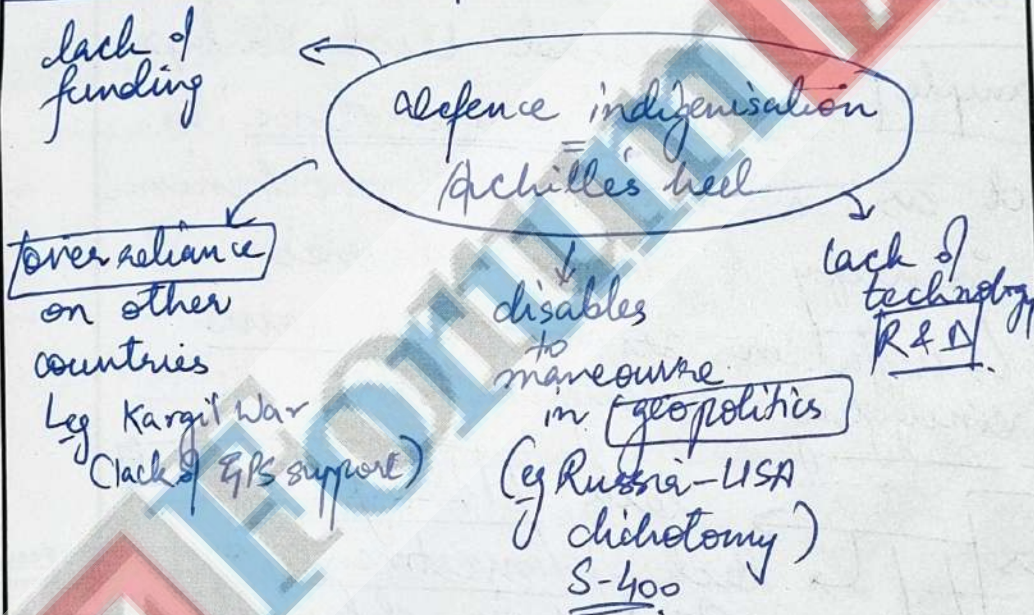 lack of
funding
Defence indigenisation
=
Achilles heel
over reliance
on other
countries
eg Kargil War
(lack of GPS support)
disables
to
maneouvre
in geopolitics
(eg Russia-USA
dichotomy)
S-400
lack of
technology
R & D
Forum